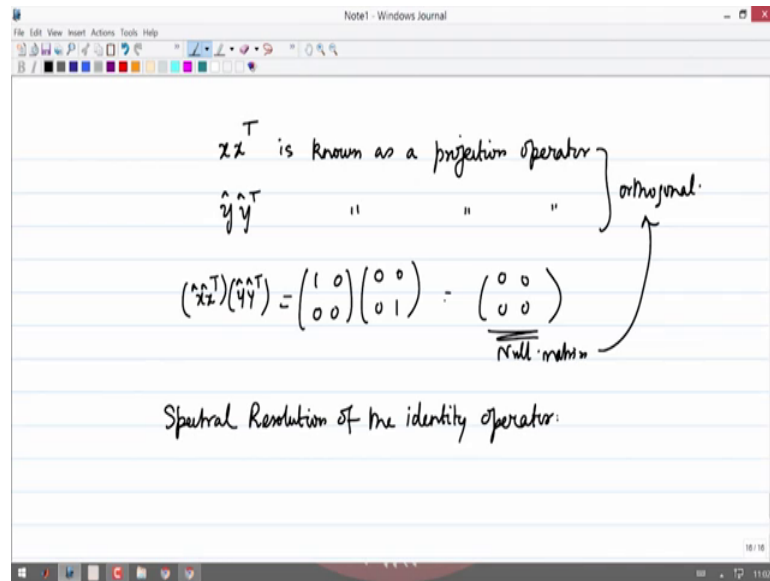 Note1 - Windows Journal
File Edit View Insert Actions Tools Help
B I
xx^T is known as a projection operator
ŷŷ^T " " "
orthogonal.
(x̂x̂^T)(ŷŷ^T) = (1 0 0 0)(0 0 0 1) = (0 0 0 0)
Null matrix
Spectral Resolution of the identity operator:
16 / 16
11:02